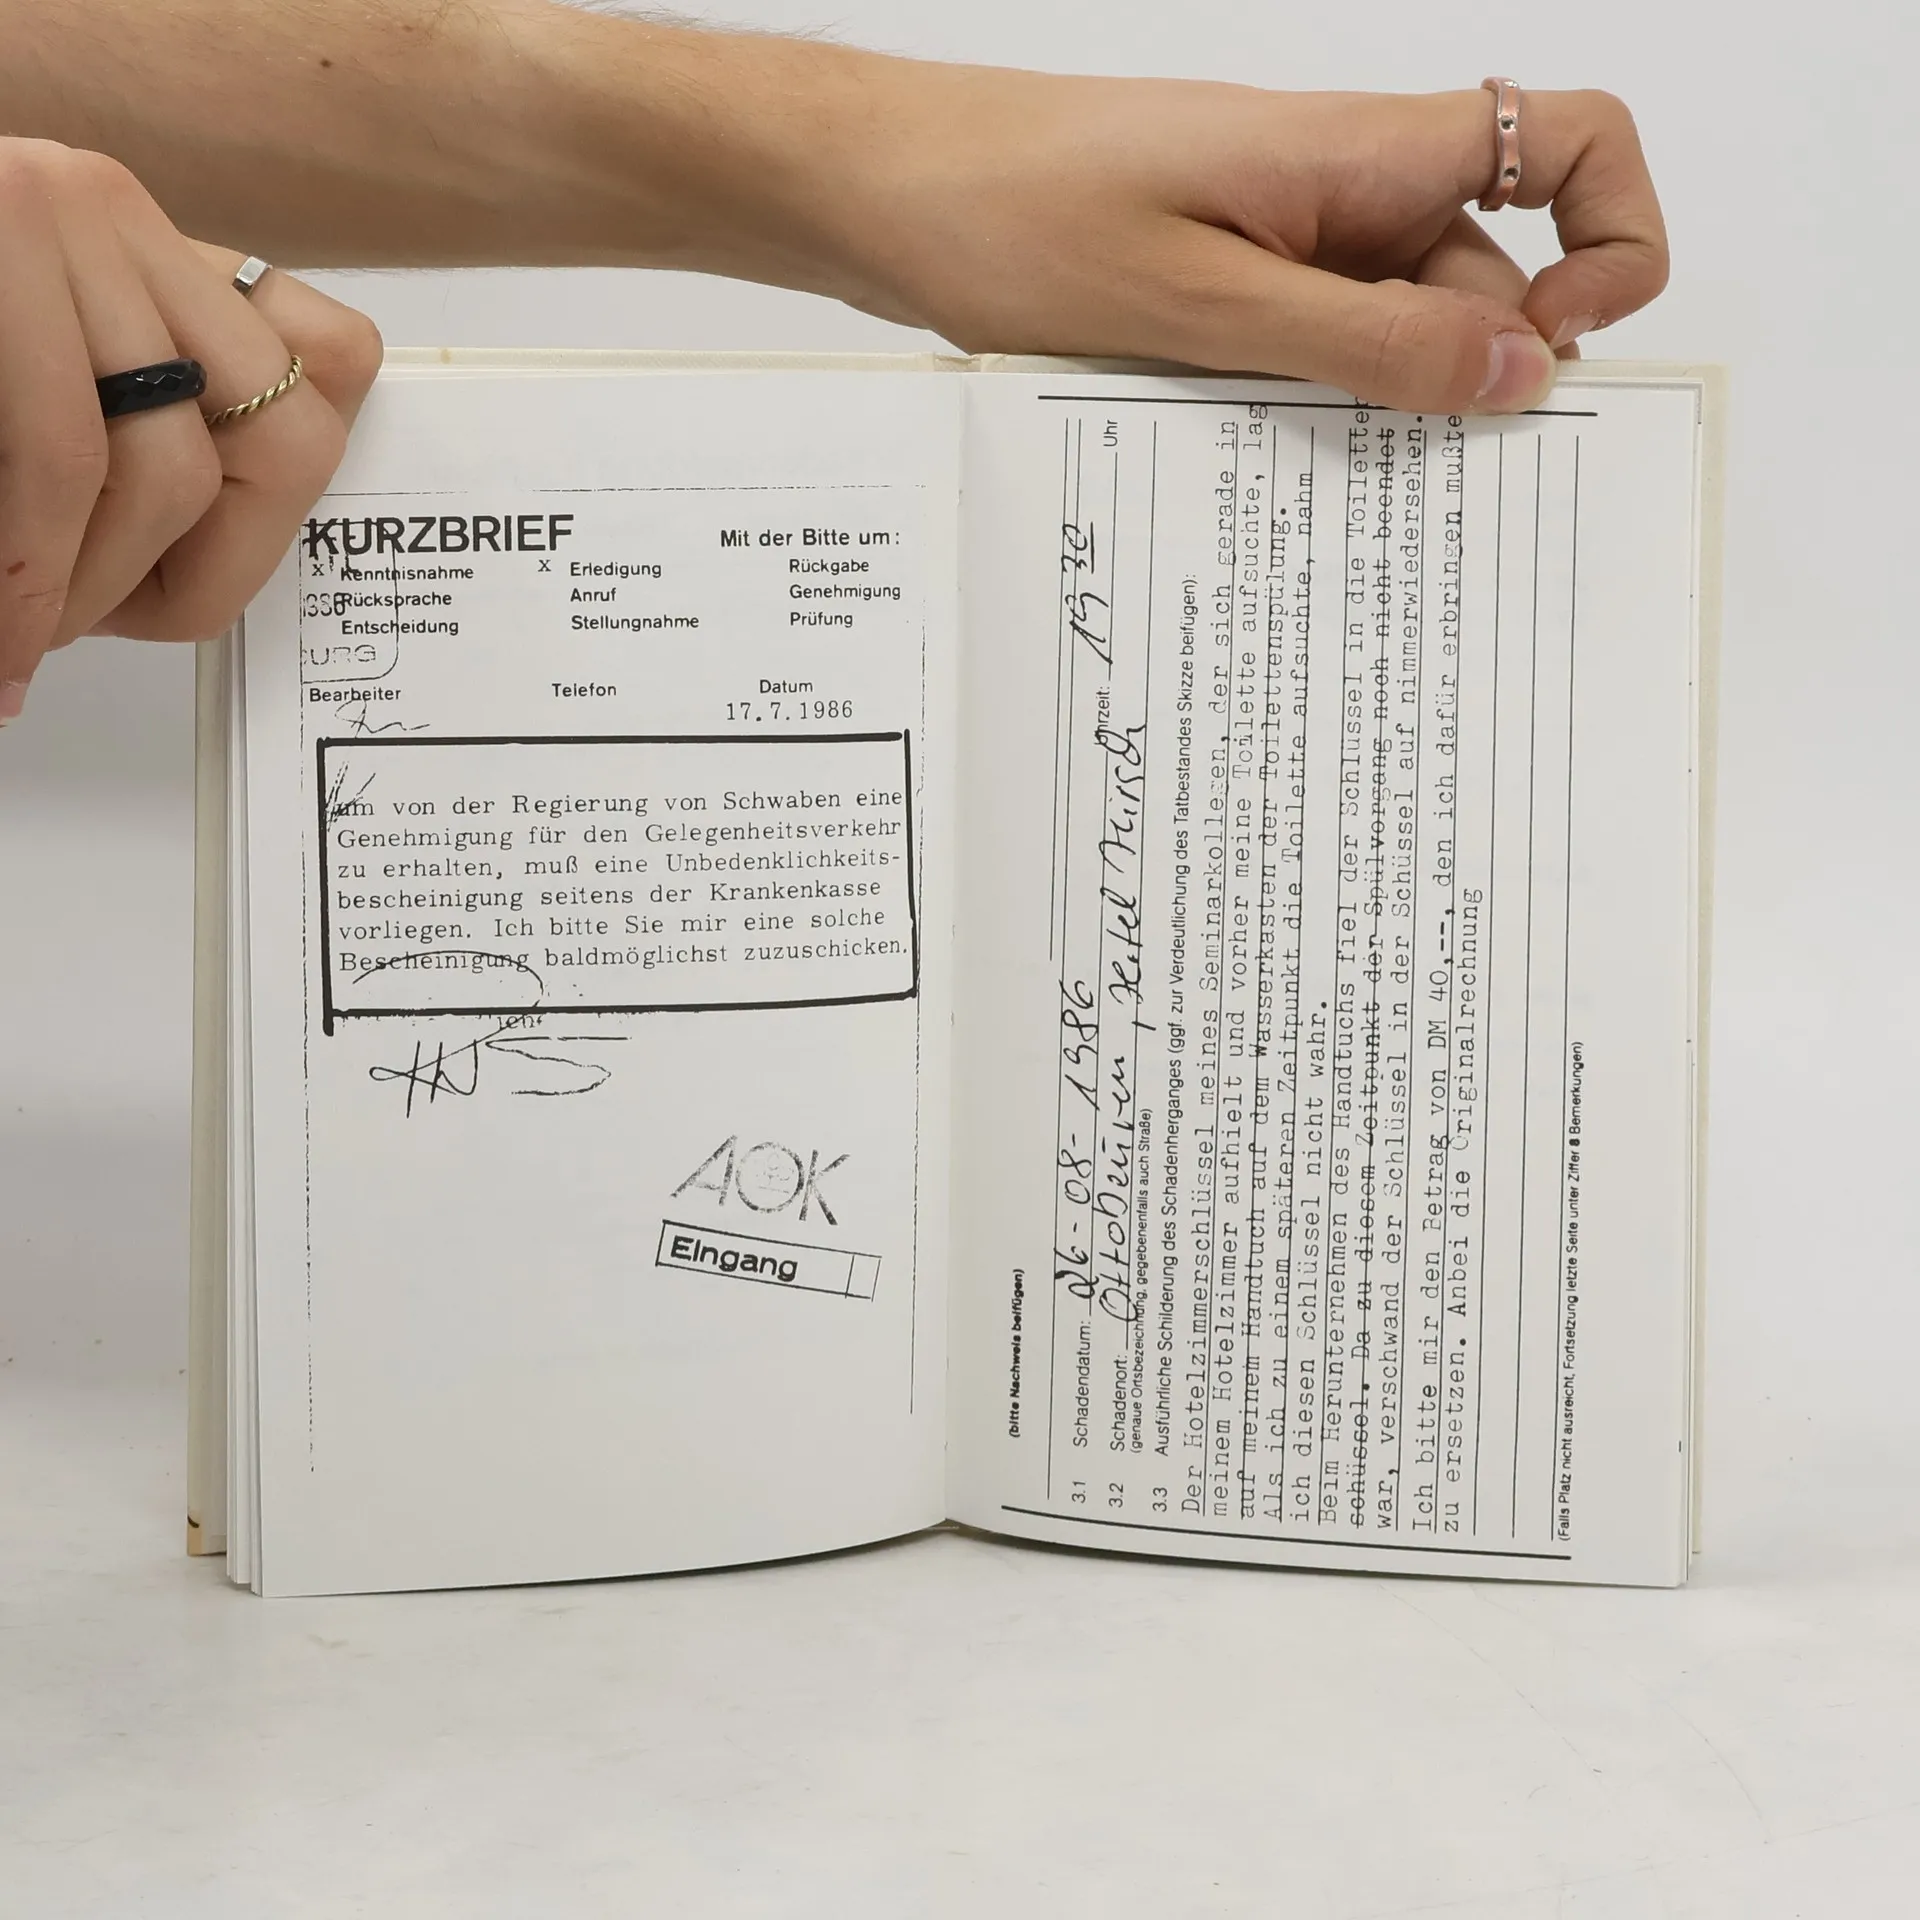 KURZBRIEF
Mit der Bitte um:
x Kenntnisnahme x Erledigung Rückgabe
Rücksprache Anruf Genehmigung
Entscheidung Stellungnahme Prüfung
URG
Bearbeiter Telefon Datum
17.7.1986
um von der Regierung von Schwaben eine
Genehmigung für den Gelegenheitsverkehr
zu erhalten, muß eine Unbedenklichkeits-
bescheinigung seitens der Krankenkasse
vorliegen. Ich bitte Sie mir eine solche
Bescheinigung baldmöglichst zuzuschicken.
AOK
Eingang
(bitte Nachweis beifügen)
3.1 Schadendatum: 26-08-1986 Uhrzeit: 19 30 Uhr
3.2 Schadenort: Ottobeuren, Hotel Hirsch
(genaue Ortsbezeichnung, gegebenenfalls auch Straße)
3.3 Ausführliche Schilderung des Schadenherganges (ggf. zur Verdeutlichung des Tatbestandes Skizze beifügen):
Der Hotelzimmerschlüssel meines Seminarkollegen, der sich gerade in
meinem Hotelzimmer aufhielt und vorher meine Toilette aufsuchte, lag
auf meinem Handtuch auf dem Wasserkasten der Toilettenspülung.
Als ich zu einem späteren Zeitpunkt die Toilette aufsuchte, nahm
ich diesen Schlüssel nicht wahr.
Beim Herunternehmen des Handtuchs fiel der Schlüssel in die Toiletten
schüssel. Da zu diesem Zeitpunkt der Spülvorgang noch nicht beendet
war, verschwand der Schlüssel in der Schüssel auf nimmerwiedersehen.
Ich bitte mir den Betrag von DM 40,--, den ich dafür erbringen mußte
zu ersetzen. Anbei die Originalrechnung
(Falls Platz nicht ausreicht, Fortsetzung letzte Seite unter Ziffer 8 Bemerkungen)